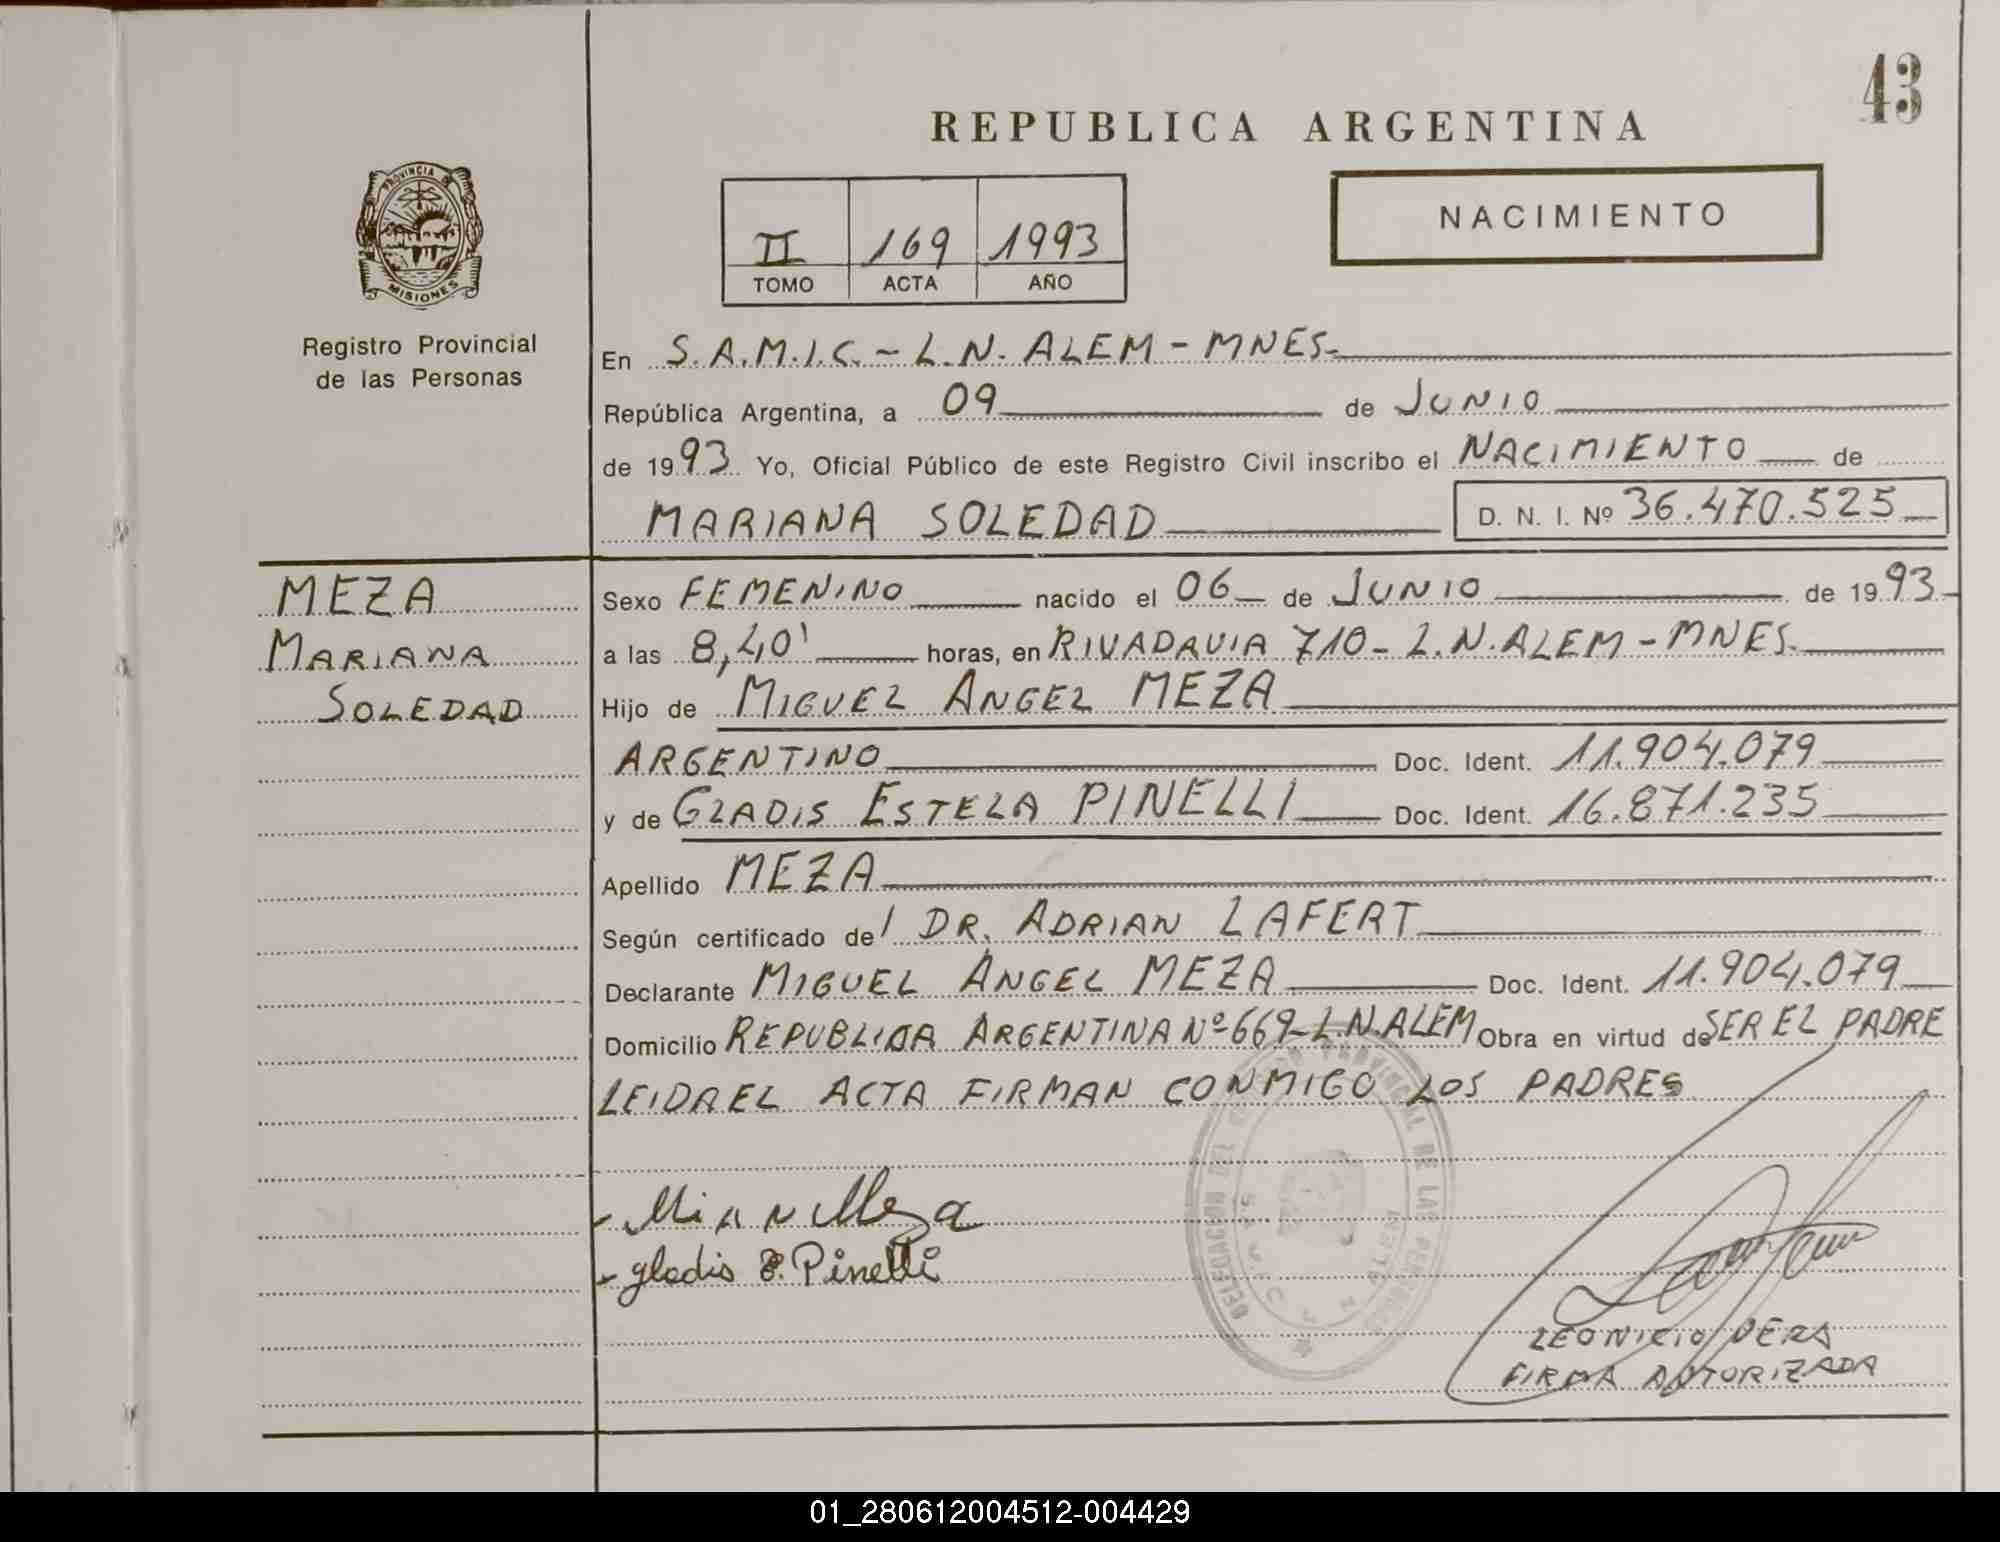 43
REPUBLICA ARGENTINA
NACIMIENTO
II 169 1993
TOMO ACTA AÑO
PROVINCIA DE
MISIONES
Registro Provincial
de las Personas
En S.A.M.I.C. - L.N. ALEM - MNES.
República Argentina, a 09 de JUNIO
de 1993 Yo, Oficial Público de este Registro Civil inscribo el NACIMIENTO de
MARIANA SOLEDAD D. N. I. Nº 36.470.525
MEZA
MARIANA
SOLEDAD
Sexo FEMENINO nacido el 06 de JUNIO de 1993
a las 8,40' horas, en RIVADAVIA 710 - L.N. ALEM - MNES.
Hijo de MIGUEL ANGEL MEZA
ARGENTINO Doc. Ident. 11.904.079
y de GLADIS ESTELA PINELLI Doc. Ident. 16.871.235
Apellido MEZA
Según certificado del DR. ADRIAN LAFERT
Declarante MIGUEL ANGEL MEZA Doc. Ident. 11.904.079
Domicilio REPUBLICA ARGENTINA Nº 669 - L.N. ALEM Obra en virtud de SER EL PADRE
LEIDA EL ACTA FIRMAN CONMIGO LOS PADRES
DELEGACION DEL PROVINCIAL DE LAS
Meza
gladis E. Pinelli
LEONICIO VERA
FIRMA AUTORIZADA
01_280612004512-004429